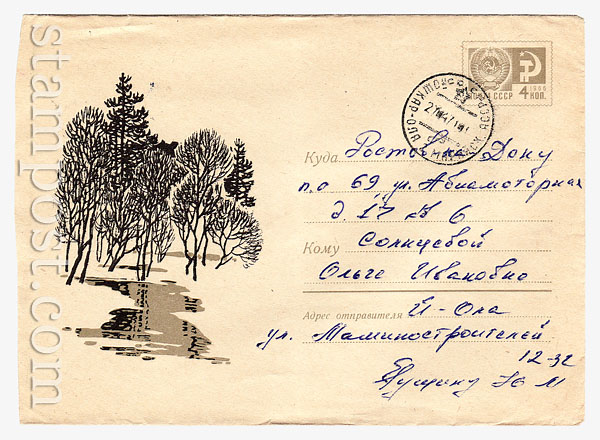 stampost.com
ПОЧТА СССР 4 КОП.
1966
ЙОШКАР-ОЛА
Куда Ростов на Дону
п.о 69 ул. Авиамоторная
д. 17 кв 6
Кому Солнцевой
Ольге Ивановне
Адрес отправителя Й-Ола
ул. Машиностроителей
12-32